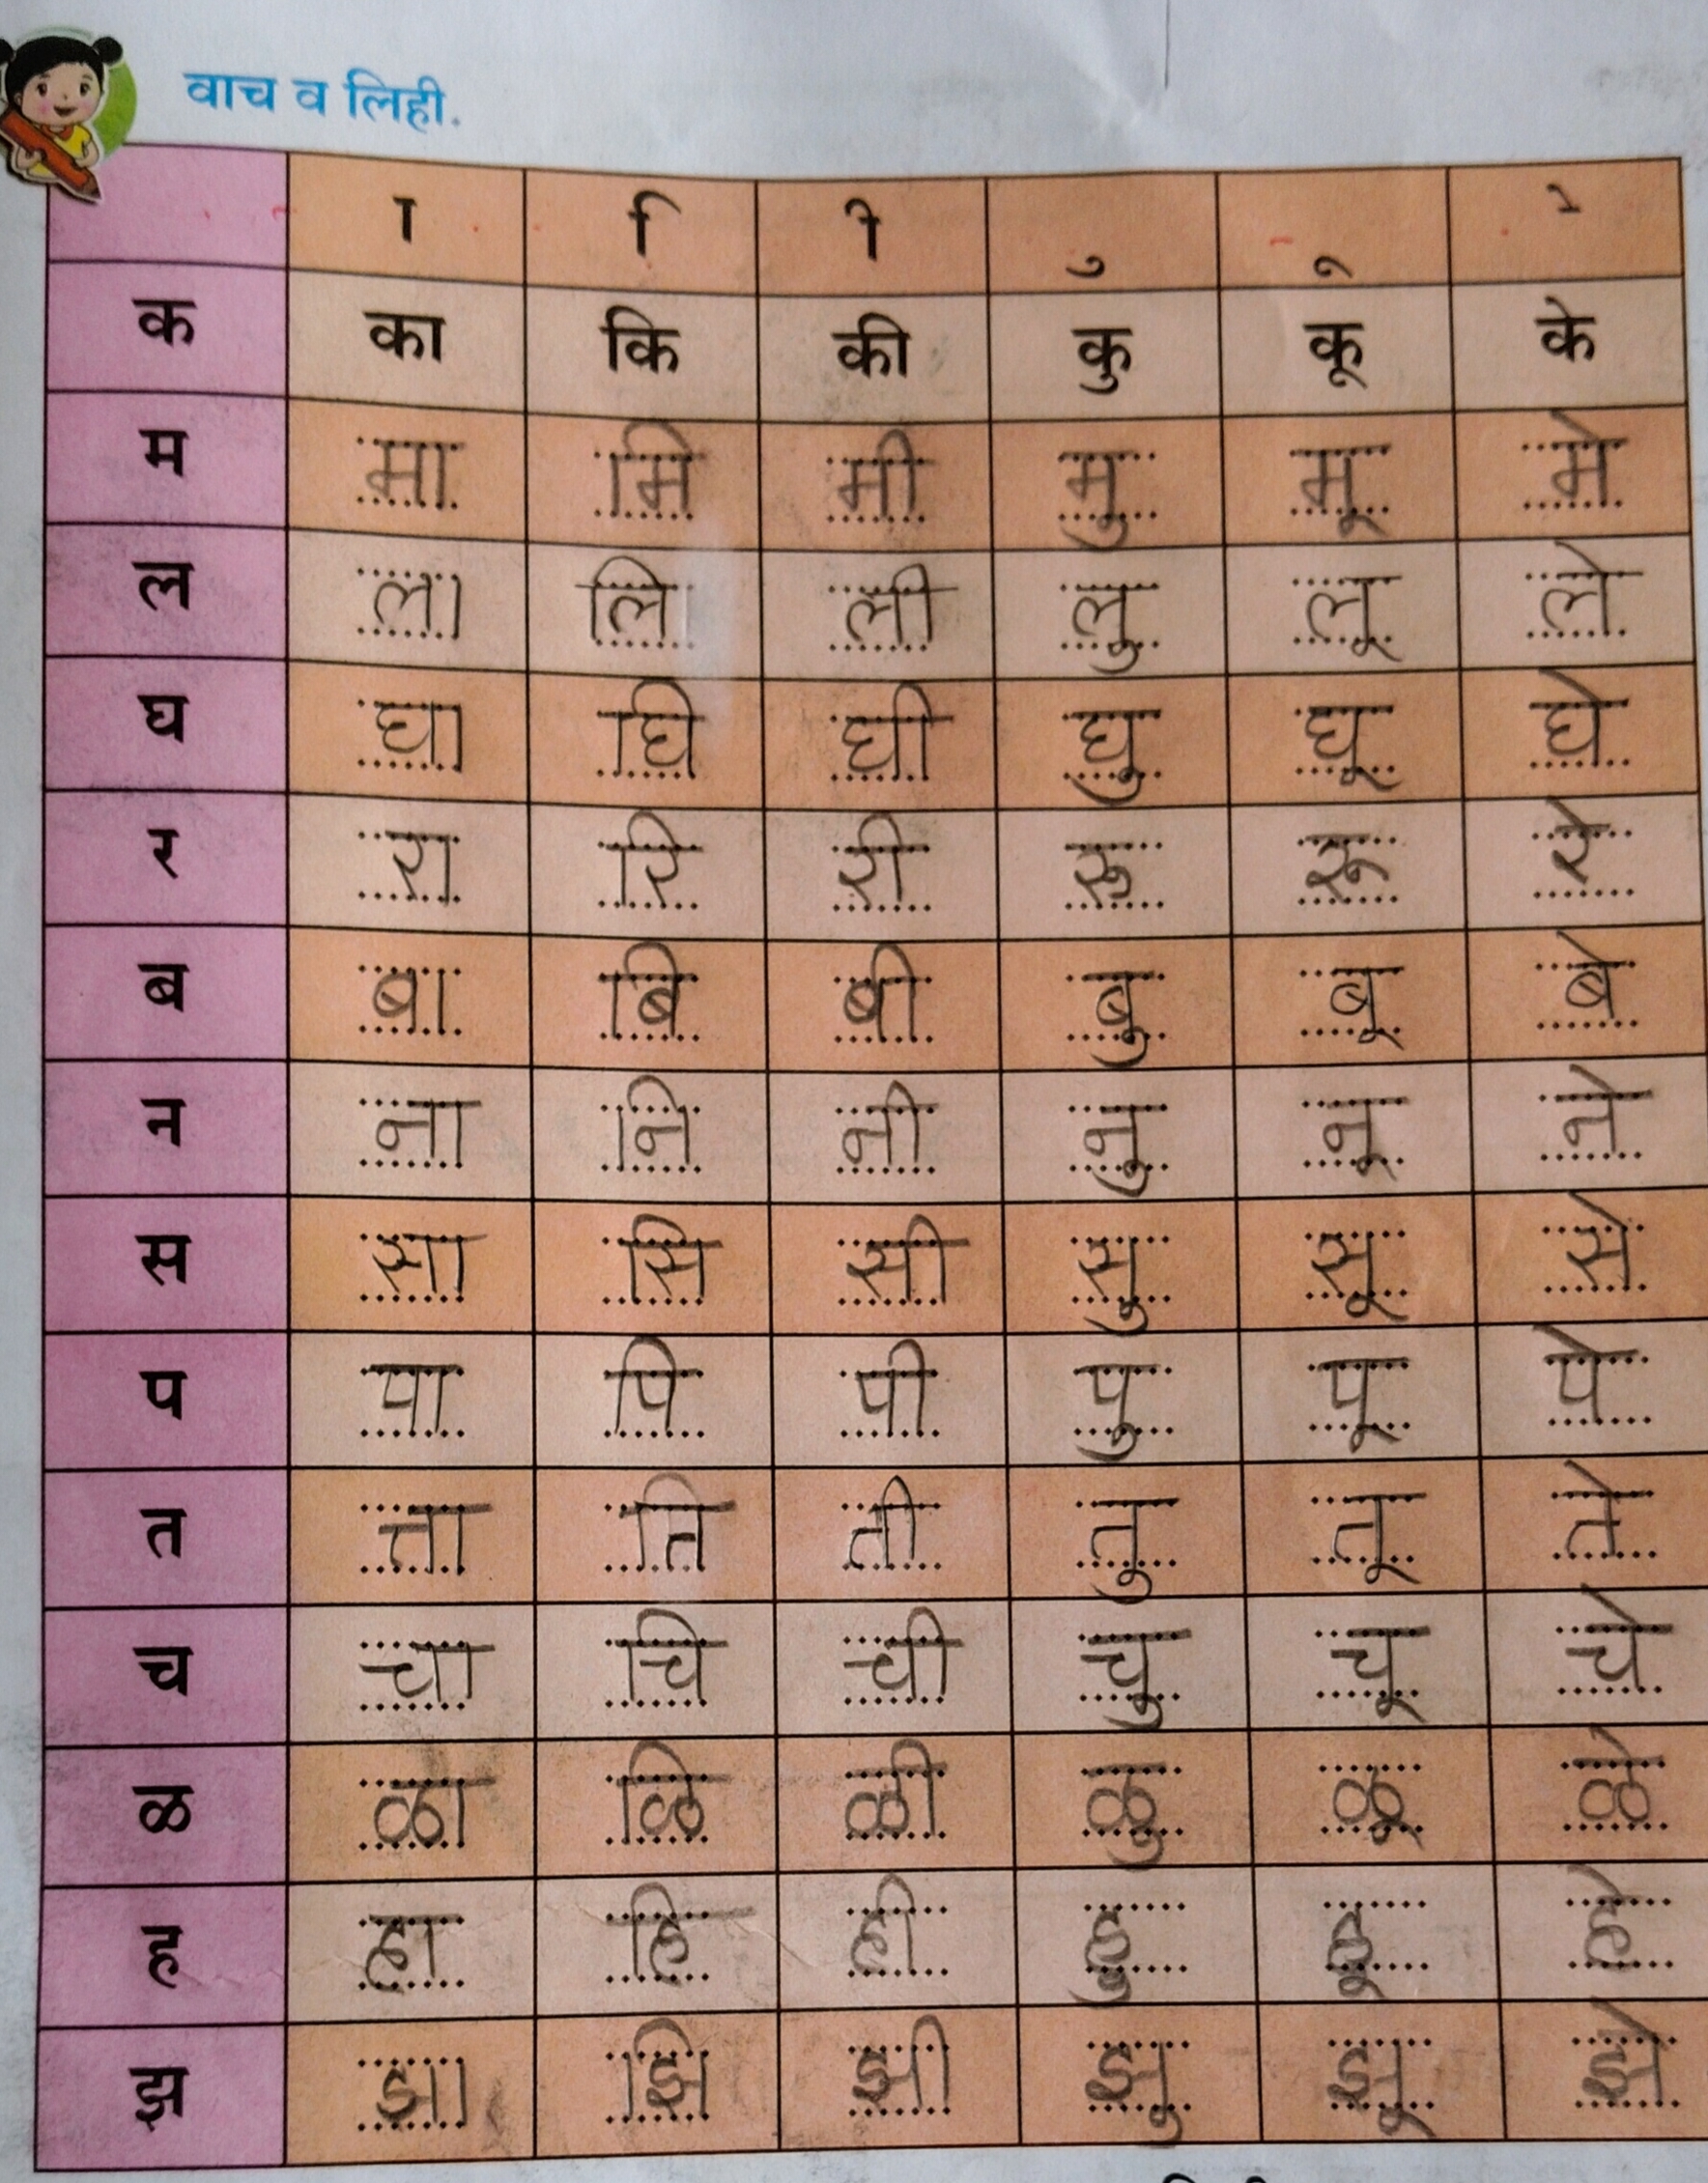 वाच व लिही.
ा ि ी ु ू े
क का कि की कु कू के
म मा मि मी मु मू मे
ल ला लि ली लु लू ले
घ घा घि घी घु घू घे
र रा रि री रु रू रे
ब बा बि बी बु बू बे
न ना नि नी नु नू ने
स सा सि सी सु सू से
प पा पि पी पु पू पे
त ता ति ती तु तू ते
च चा चि ची चु चू चे
ळ ळा ळि ळी ळु ळू ळे
ह हा हि ही हु हू हे
झ झा झि झी झु झू झे